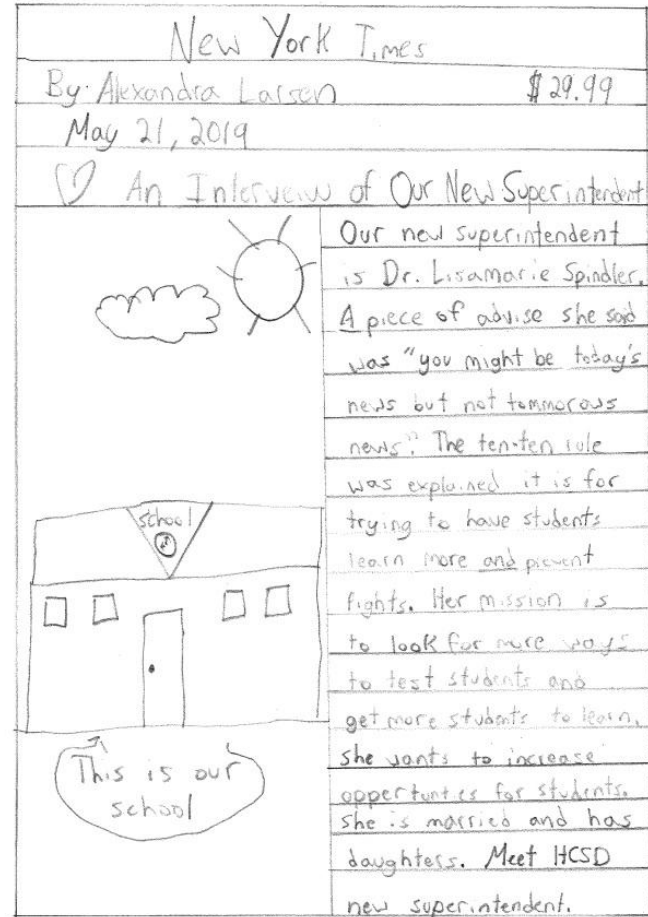 New York Times
By: Alexandra Larsen $29.99
May 21, 2019
An Interveiw of Our New Superintendent
Our new superintendent
is Dr. Lisamarie Spindler.
A piece of advise she said
was "you might be today's
news but not tommorows
news". The ten-ten rule
was explained it is for
trying to have students
learn more and prevent
fights. Her mission is
to look for more ways
to test students and
get more students to learn.
she wants to increase
oppertunties for students.
she is married and has
daughters. Meet HCSD
new superintendent.
school
This is our
school